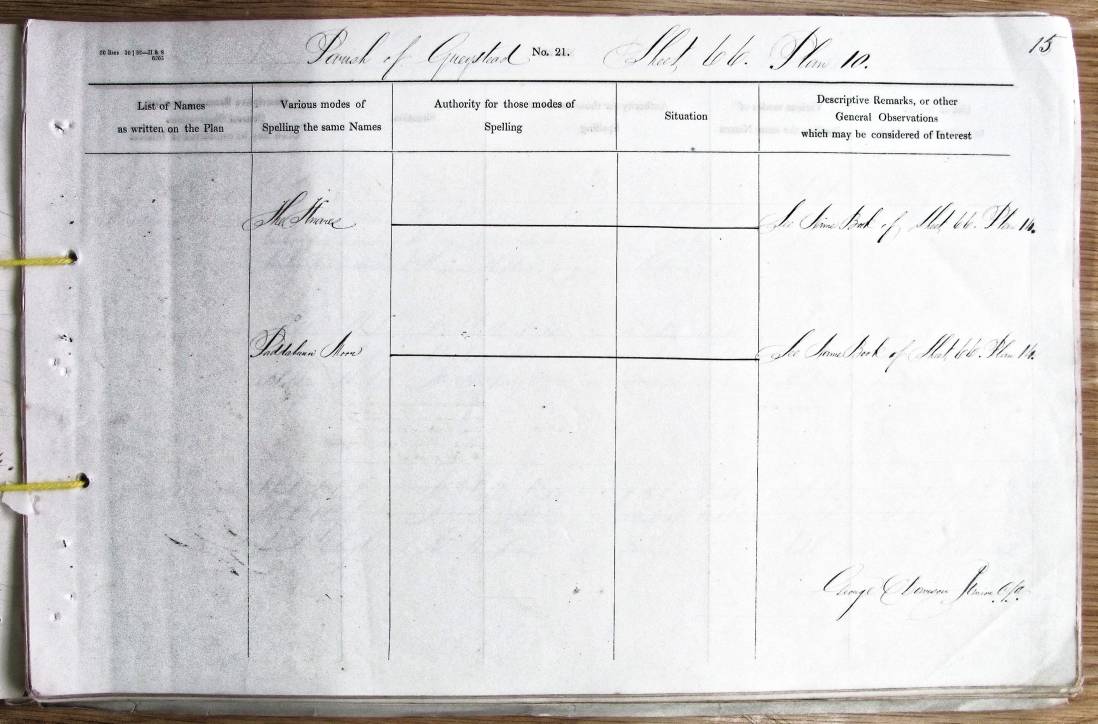 Parish of Greystead No. 21. Sheet 66. Plan 10.
15
List of Names
as written on the Plan
Various modes of
Spelling the same Names
Authority for those modes of
Spelling
Situation
Descriptive Remarks, or other
General Observations
which may be considered of Interest
The
See Name Book of Sheet 66. Plan 14.
Moor
See Name Book of Sheet 66. Plan 14.
George